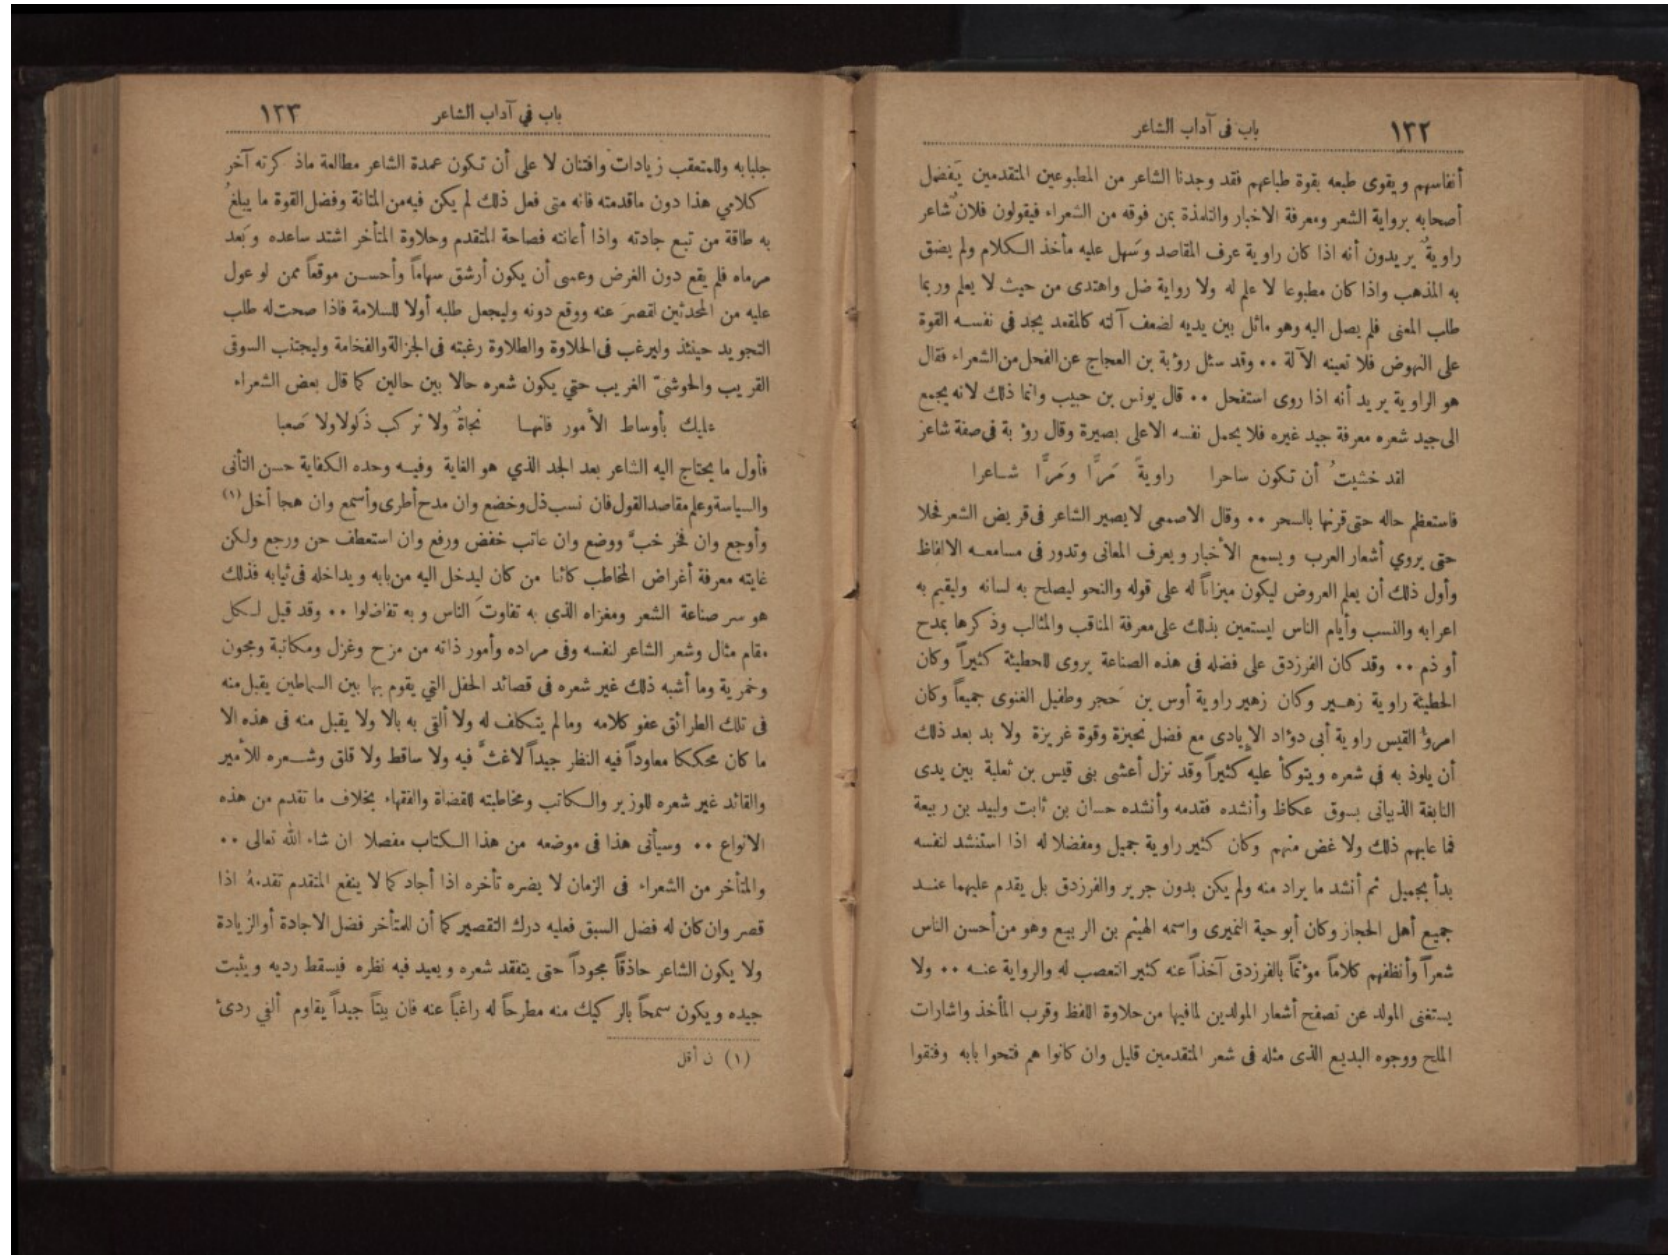 ١٣٢
باب فى آداب الشاعر
أنفاسهم ويقوى طبعه بقوة طباعهم فقد وجدنا الشاعر من المطبوعين المتقدمين يَفضل
أصحابه برواية الشعر ومعرفة الاخبار والتلمذة بمن فوقه من الشعراء فيقولون فلانٌ شاعر
راويةٌ يريدون أنه اذا كان راوية عرف المقاصد وَسهل عليه مأخذ الكلام ولم يضق
به المذهب واذا كان مطبوعا لا علم له ولا رواية ضل واهتدى من حيث لا يعلم وربما
طلب المعنى فلم يصل اليه وهو ماثل بين يديه لضعف آلته كالمقعد يجد فى نفسه القوة
على النهوض فلا تعينه الآلة •• وقد سئل رؤبة بن العجاج عن الفحل من الشعراء فقال
هو الراوية يريد أنه اذا روى استفحل •• قال يونس بن حبيب وانما ذلك لانه يجمع
الى جيد شعره معرفة جيد غيره فلا يحمل نفسه الاعلى بصيرة وقال رؤبة فى صفة شاعر
لقد خشيتُ أن تكون ساحرا راويةً مَرًّا ومَرًّا شاعرا
فاستعظم حاله حتى قرنها بالسحر •• وقال الاصمعى لا يصير الشاعر فى قريض الشعر فحلا
حتى يروي أشعار العرب ويسمع الأخبار ويعرف المعانى وتدور فى مسامعه الالفاظ
وأول ذلك أن يعلم العروض ليكون ميزاناً له على قوله والنحو ليصلح به لسانه وليقيم به
اعرابه والنسب وأيام الناس ليستعين بذلك على معرفة المناقب والمثالب وذكرها بمدح
أو ذم •• وقد كان الفرزدق على فضله فى هذه الصناعة يروى للحطيئة كثيراً وكان
الحطيئة راوية زهير وكان زهير راوية أوس بن حَجر وطفيل الغنوى جميعاً وكان
امرؤ القيس راوية أبى دؤاد الإيادى مع فضل نحيزة وقوة غريزة ولا بد بعد ذلك
أن يلوذ به فى شعره ويتوكأ عليه كثيراً وقد نزل أعشى بنى قيس بن ثعلبة بين يدى
النابغة الذبيانى بسوق عكاظ وأنشده فقدمه وأنشده حسان بن ثابت ولبيد بن ربيعة
فما عابهم ذلك ولا غض منهم وكان كثير راوية جميل ومفضلا له اذا استنشد لنفسه
بدأ بجميل ثم أنشد ما يراد منه ولم يكن بدون جرير والفرزدق بل يقدم عليهما عند
جميع أهل الحجاز وكان أبو حية النميرى واسمه الهيثم بن الربيع وهو من أحسن الناس
شعراً وأنظفهم كلاماً مؤتماً بالفرزدق آخذاً عنه كثير التعصب له والرواية عنه •• ولا
يستغنى المولد عن تصفح أشعار المولدين لما فيها من حلاوة اللفظ وقرب المأخذ واشارات
الملح ووجوه البديع الذى مثله فى شعر المتقدمين قليل وان كانوا هم فتحوا بابه وفتقوا
باب في آداب الشاعر
١٣٣
جلبابه وللمتعقب زيادات وافتنان لا على أن تكون عمدة الشاعر مطالعة ماذكرته آخر
كلامي هذا دون ماقدمته فانه متى فعل ذلك لم يكن فيه من المتانة وفضل القوة ما يبلغُ
به طاقة من تبع جادته واذا أعانته فصاحة المتقدم وحلاوة المتأخر اشتد ساعده وبَعد
مرماه فلم يقع دون الغرض وعسى أن يكون أرشق سهاماً وأحسن موقعاً ممن لو عول
عليه من المحدثين لقصرَ عنه ووقع دونه وليجعل طلبه أولا للسلامة فاذا صحت له طلب
التجويد حينئذ وليرغب فى الحلاوة والطلاوة رغبته فى الجزالة والفخامة وليجتنب السوقى
القريب والحوشىّ الغريب حتي يكون شعره حالا بين حالين كما قال بعض الشعراء
عليك بأوساط الأمور فانها نجاةٌ ولا تركب ذَلولاولا صَعبا
فأول ما يحتاج اليه الشاعر بعد الجد الذي هو الغاية وفيه وحده الكفاية حسن التأنى
والسياسة وعلم مقاصد القول فان نسب ذل وخضع وان مدح أطرى وأسمع وان هجا أخل (١)
وأوجع وان فخر خبَّ ووضع وان عاتب خفض ورفع وان استعطف حن ورجع ولكن
غايته معرفة أغراض المخاطب كائنا من كان ليدخل اليه من بابه ويداخله فى ثيابه فذلك
هو سر صناعة الشعر ومغزاه الذى به تفاوتَ الناس وبه تفاضلوا •• وقد قيل لكل
مقام مثال وشعر الشاعر لنفسه وفى مراده وأمور ذاته من مزح وغزل ومكاتبة ومجون
وخمرية وما أشبه ذلك غير شعره فى قصائد الحفل التي يقوم بها بين السماطين يقبل منه
فى تلك الطرائق عفو كلامه ومالم يتكلف له ولا ألقى به بالا ولا يقبل منه فى هذه الا
ما كان محككا معاوداً فيه النظر جيداً لاغثَّ فيه ولا ساقط ولا قلق وشعره للأمير
والقائد غير شعره للوزير والكاتب ومخاطبته للقضاة والفقهاء بخلاف ما تقدم من هذه
الانواع •• وسيأتى هذا فى موضعه من هذا الكتاب مفصلا ان شاء الله تعالى ••
والمتأخر من الشعراء فى الزمان لا يضره تأخره اذا أجاد كما لا ينفع المتقدم تقدمهُ اذا
قصر وان كان له فضل السبق فعليه درك التقصير كما أن للمتأخر فضل الاجادة أو الزيادة
ولا يكون الشاعر حاذقاً مجوداً حتى يتفقد شعره ويعيد فيه نظره فيسقط رديه ويثبت
جيده ويكون سمحاً بالركيك منه مطرحاً له راغباً عنه فان بيتاً جيداً يقاوم ألفي ردئ
(١) ن أقل